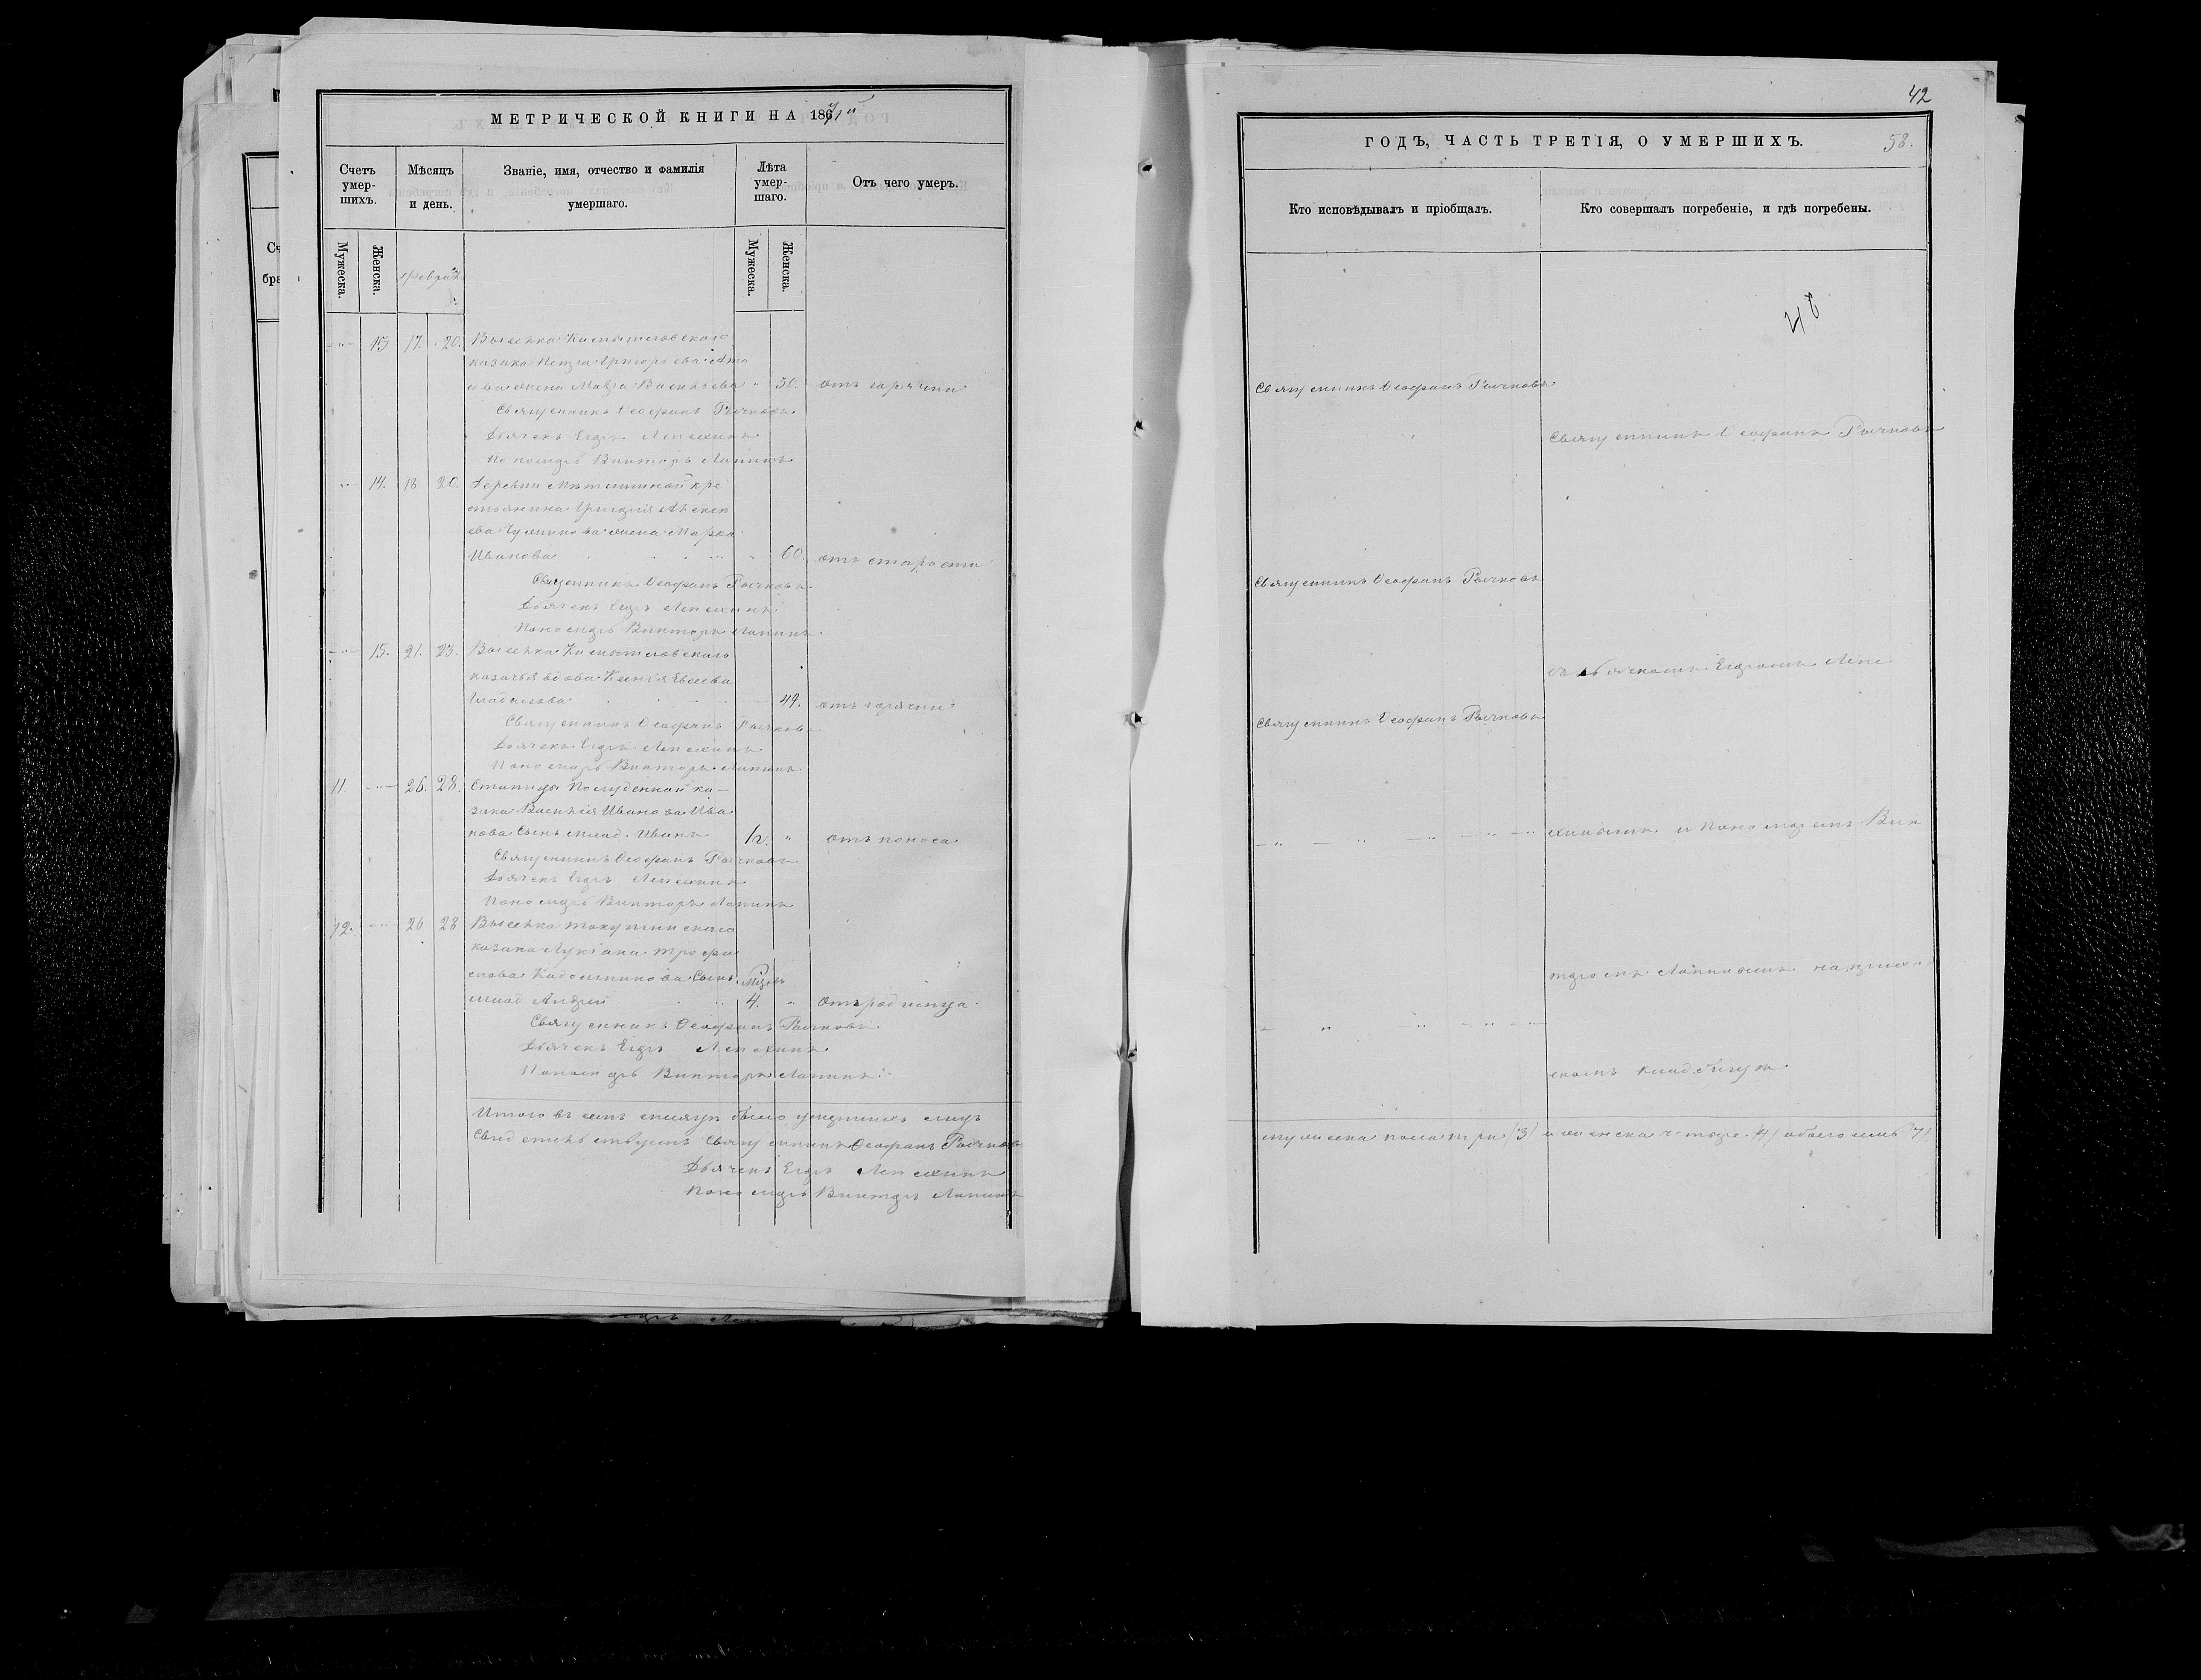 МЕТРИЧЕСКОЙ КНИГИ НА 1871й
Счетъ умер-шихъ.
Мѣсяцъ и день.
Званіе, имя, отчество и фамилія умершаго.
Лѣта умер-шаго.
Отъ чего умеръ.
Мужеска.
Женска.
Мужеска.
Женска.
13 17. 20. Выселка Камышловскаго
казака Петра Григорьева
жена Мавра Васильева " 50. отъ горячки
Священникъ Ѳеофанъ Рычковъ
Дьячекъ Егоръ Лепехинъ
Пономарь Викторъ Лапинъ
14. 18 20. Деревни кре
стьянина Григорія Алексѣ
ева жена Марѳа
Иванова " 60. отъ старости
Священникъ Ѳеофанъ Рычковъ
Дьячекъ Егоръ Лепехинъ
Пономарь Викторъ Лапинъ
15. 21. 23. Выселка Камышловскаго
казачья вдова Ксенія Евсѣева
49. отъ горячки
Священникъ Ѳеофанъ Рычковъ
Дьячекъ Егоръ Лепехинъ
Пономарь Викторъ Лапинъ
11. 26. 28. Станицы Полуденной ка-
зака Василія Иванова Ива
нова сынъ млад. Иванъ " отъ поноса
Священникъ Ѳеофанъ Рычковъ
Дьячекъ Егоръ Лепехинъ
Пономарь Викторъ Лапинъ
12. 26 28 Выселка Токушинскаго
казака Лукіана Трофи
мова сынъ
млад Андрей 4. " отъ родимца
Священникъ Ѳеофанъ Рычковъ
Дьячекъ Егоръ Лепехинъ
Пономарь Викторъ Лапинъ
Итого въ семъ мѣсяцѣ было умершихъ
Свидѣтельствуемъ Священникъ Ѳеофанъ Рычковъ
Дьячекъ Егоръ Лепехинъ
Пономарь Викторъ Лапинъ
42
ГОДЪ, ЧАСТЬ ТРЕТІЯ, О УМЕРШИХЪ.
53.
Кто исповѣдывалъ и пріобщалъ.
Кто совершалъ погребеніе, и гдѣ погребены.
Священникъ Ѳеофанъ Рычковъ
Священникъ Ѳеофанъ Рычковъ
Священникъ Ѳеофанъ Рычковъ
съ дьячкомъ Егоромъ Лепе
Священникъ Ѳеофанъ Рычковъ
хинымъ и пономаремъ Вик
торомъ Лапинымъ на приход
скомъ кладбищѣ.
мужеска пола три (3) и женска четыре (4) обоего семь (7)